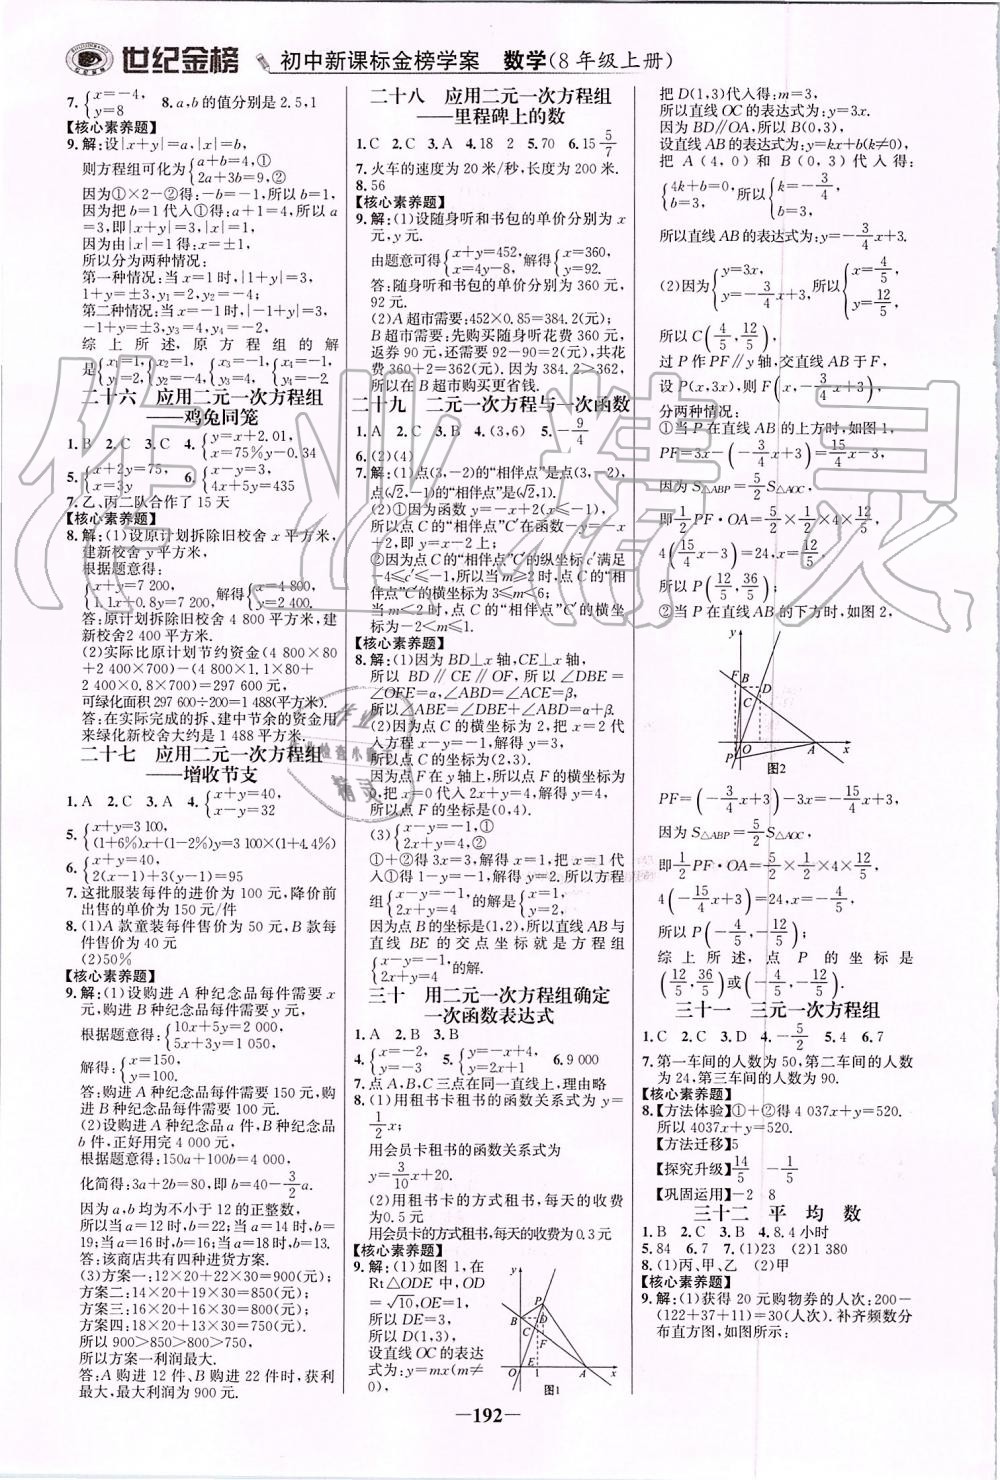 世纪金榜 初中新课标金榜学案 数学(8年级上册)
7.{x=-4, y=8 8.a,b的值分别是2.5,1
【核心素养题】
9.解:设|x+y|=a,|x|=b,
则方程组可化为{a+b=4,① 2a+3b=9,②
因为①×2-②得:-b=-1,所以b=1.
因为把b=1代入①得:a+1=4,所以a
=3,即|x+y|=3,|x|=1.
因为由|x|=1得:x=±1,
所以分为两种情况:
第一种情况:当x=1时,|1+y|=3,
1+y=±3,y₁=2,y₂=-4;
第二种情况:当x=-1时,|-1+y|=3,
-1+y=±3,y₃=4,y₄=-2,
综上所述,原方程组的解
是{x₁=1, y₁=2,{x₂=1, y₂=-4,{x₃=-1, y₃=4,{x₄=-1, y₄=-2
二十六 应用二元一次方程组
——鸡兔同笼
1.B 2.C 3.C 4.{y=x+2.01, x=75%y-0.34
5.{x+2y=75, x=3y 6.{x+y=95, 4x+5y=435
7.乙、丙二队合作了15天
【核心素养题】
8.解:(1)设原计划拆除旧校舍x平方米,
建新校舍y平方米,
根据题意得:
{x+y=7 200, 1.1x+0.8y=7 200, 解得{x=4 800, y=2 400.
答:原计划拆除旧校舍4 800平方米,建
新校舍2 400平方米.
(2)实际比原计划节约资金(4 800×80
+2 400×700)-(4 800×1.1×80+
2 400×0.8×700)=297 600元,
可绿化面积297 600÷200=1 488(平方米).
答:在实际完成的拆、建中节余的资金用
来绿化新校舍大约是1 488平方米.
二十七 应用二元一次方程组
——增收节支
1.A 2.C 3.A 4.{x+y=40, x-y=32
5.{x+y=3 100, (1+6%)x+(1-2%)y=3 100×(1+4.4%)
6.{x+y=40, 2(x-1)+3(y-1)=95
7.这批服装每件的进价为100元,降价前
出售的单价为150元/件
8.(1)A款童装每件售价为50元,B款每
件售价为40元
(2)50%
【核心素养题】
9.解:(1)设购进A种纪念品每件需要x
元,购进B种纪念品每件需要y元,
根据题意得:{10x+5y=2 000, 5x+3y=1 050,
解得:{x=150, y=100.
答:购进A种纪念品每件需要150元,购
进B种纪念品每件需要100元.
(2)设购进A种纪念品a件,B种纪念品
b件,正好用完4 000元,
根据题意得:150a+100b=4 000,
化简得:3a+2b=80,即b=40-3/2a.
因为a,b均为不小于12的正整数,
所以当a=12时,b=22;当a=14时,b=
19;当a=16时,b=16;当a=18时,b=13.
答:该商店共有四种进货方案.
(3)方案一:12×20+22×30=900(元),
方案二:14×20+19×30=850(元),
方案三:16×20+16×30=800(元),
方案四:18×20+13×30=750(元),
所以900>850>800>750,
所以方案一利润最大.
答:A购进12件、B购进22件时,获利
最大,最大利润为900元.
二十八 应用二元一次方程组
——里程碑上的数
1.C 2.C 3.A 4.18 2 5.70 6.15 5/7
7.火车的速度为20米/秒,长度为200米.
8.56
【核心素养题】
9.解:(1)设随身听和书包的单价分别为x
元,y元.
由题意可得{x+y=452, x=4y-8, 解得{x=360, y=92.
答:随身听和书包的单价分别为360元,
92元.
(2)A超市需要:452×0.85=384.2(元);
B超市需要:先购买随身听花费360元,
返券90元,还需要92-90=2(元),共花费
360+2=362(元).因为384.2>362,
所以在B超市购买更省钱.
二十九 二元一次方程与一次函数
1.A 2.C 3.B 4.(3,6) 5.-9/4
6.(2)(4)
7.解:(1)点(3,-2)的“相伴点”是点(3,-2),
点(√2,-1)的“相伴点”是(√2,1).
(2)①因为函数y=-x+2(x≤-1),
所以点C的“相伴点”C′在函数-y=-x
+2,即y=x-2上;
②因为点C的“相伴点”C′的纵坐标c′满足
-4≤c′≤1,所以当m≥2时,点C的“相
伴点”C′的横坐标为3≤m≤6;
当m≤2时,点C的“相伴点”C′的横坐
标为-2<m≤1.
【核心素养题】
8.解:(1)因为BD⊥x轴,CE⊥x轴,
所以BD∥CE∥OF,所以∠DBE=
∠OFE=α,∠ABD=∠ACE=β,
所以∠ABE=∠DBE+∠ABD=α+β.
(2)因为点C的横坐标为2,把x=2代
入方程x-y=-1,解得y=3,
所以点C的坐标为(2,3).
因为点F在y轴上,所以点F的横坐标为
0,把x=0代入2x+y=4,解得y=4,
所以点F的坐标是(0,4).
(3){x-y=-1,① 2x+y=4,②
①+②得3x=3,解得x=1.把x=1代
入①得1-y=-1,解得y=2.所以方程
组{x-y=-1, 2x+y=4的解是{x=1, y=2,
因为点B的坐标为(1,2),所以直线AB与
直线BE的交点坐标就是方程组
{x-y=-1, 2x+y=4的解.
三十 用二元一次方程组确定
一次函数表达式
1.A 2.B 3.B
4.{x=-2, y=3 5.{y=-x+4, y=2x+1 6.9 000
7.点A,B,C三点在同一直线上,理由略
8.(1)用租书卡租书的函数关系式为y=
1/2x;
用会员卡租书的函数关系式为
y=3/10x+20.
(2)用租书卡的方式租书,每天的收费
为0.5元
用会员卡的方式租书,每天的收费为0.3元
【核心素养题】
9.解:(1)如图1,在
Rt△ODE中,OD
=√10,OE=1,
所以DE=3,
所以D(1,3),
设直线OC的表达
式为:y=mx(m≠
0),
y P B D C F O E 1 A x 图1
把D(1,3)代入得:m=3,
所以直线OC的表达式为:y=3x.
因为BD∥OA,所以B(0,3),
设直线AB的表达式为:y=kx+b(k≠0).
把A(4,0)和B(0,3)代入得:
{4k+b=0, b=3, 所以{k=-3/4, b=3,
所以直线AB的表达式为:y=-3/4x+3.
(2)因为{y=3x, y=-3/4x+3, 所以{x=4/5, y=12/5,
所以C(4/5,12/5),
过P作PF∥y轴,交直线AB于F,
设P(x,3x),则F(x,-3/4x+3),
分两种情况:
①当P在直线AB的上方时,如图1,
PF=3x-(-3/4x+3)=15/4x-3,
因为S△ABP=5/2S△AOC,
即1/2PF·OA=5/2×1/2×4×12/5,
4(15/4x-3)=24,x=12/5,
所以P(12/5,36/5);
②当P在直线AB的下方时,如图2,
y F B D C O A x P 图2
PF=(-3/4x+3)-3x=-15/4x+3,
因为S△ABP=5/2S△AOC,
即1/2PF·OA=5/2×1/2×4×12/5,
4(-15/4x+3)=24,x=-4/5,
所以P(-4/5,-12/5);
综上所述,点P的坐标是
(12/5,36/5)或(-4/5,-12/5).
三十一 三元一次方程组
1.C 2.C 3.D 4.-5/2 5.4 6.7
7.第一车间的人数为50,第二车间的人数
为24,第三车间的人数为90.
【核心素养题】
8.【方法体验】①+②得4 037x+y=520.
所以4037x+y=520.
【方法迁移】5
【探究升级】14/5 -1/5
【巩固运用】-2 8
三十二 平均数
1.B 2.C 3.C 4.8.4小时
5.84 6.7 7.(1)23 (2)1 380
8.(1)丙、甲、乙 (2)甲
【核心素养题】
9.解:(1)获得20元购物券的人次:200-
(122+37+11)=30(人次).补齐频数分
布直方图,如图所示:
—192—
作业精灵